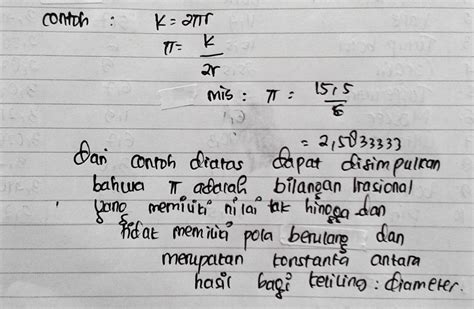 contoh : K = 2πr
π = K
2r
mis : π = 15,5
6
= 2,5833333
Dari contoh diatas dapat disimpulkan
bahwa π adalah bilangan Irasional
yang memiliki nilai tak hingga dan
tidak memiliki pola berulang dan
merupakan konstanta antara
hasil bagi keliling : diameter.